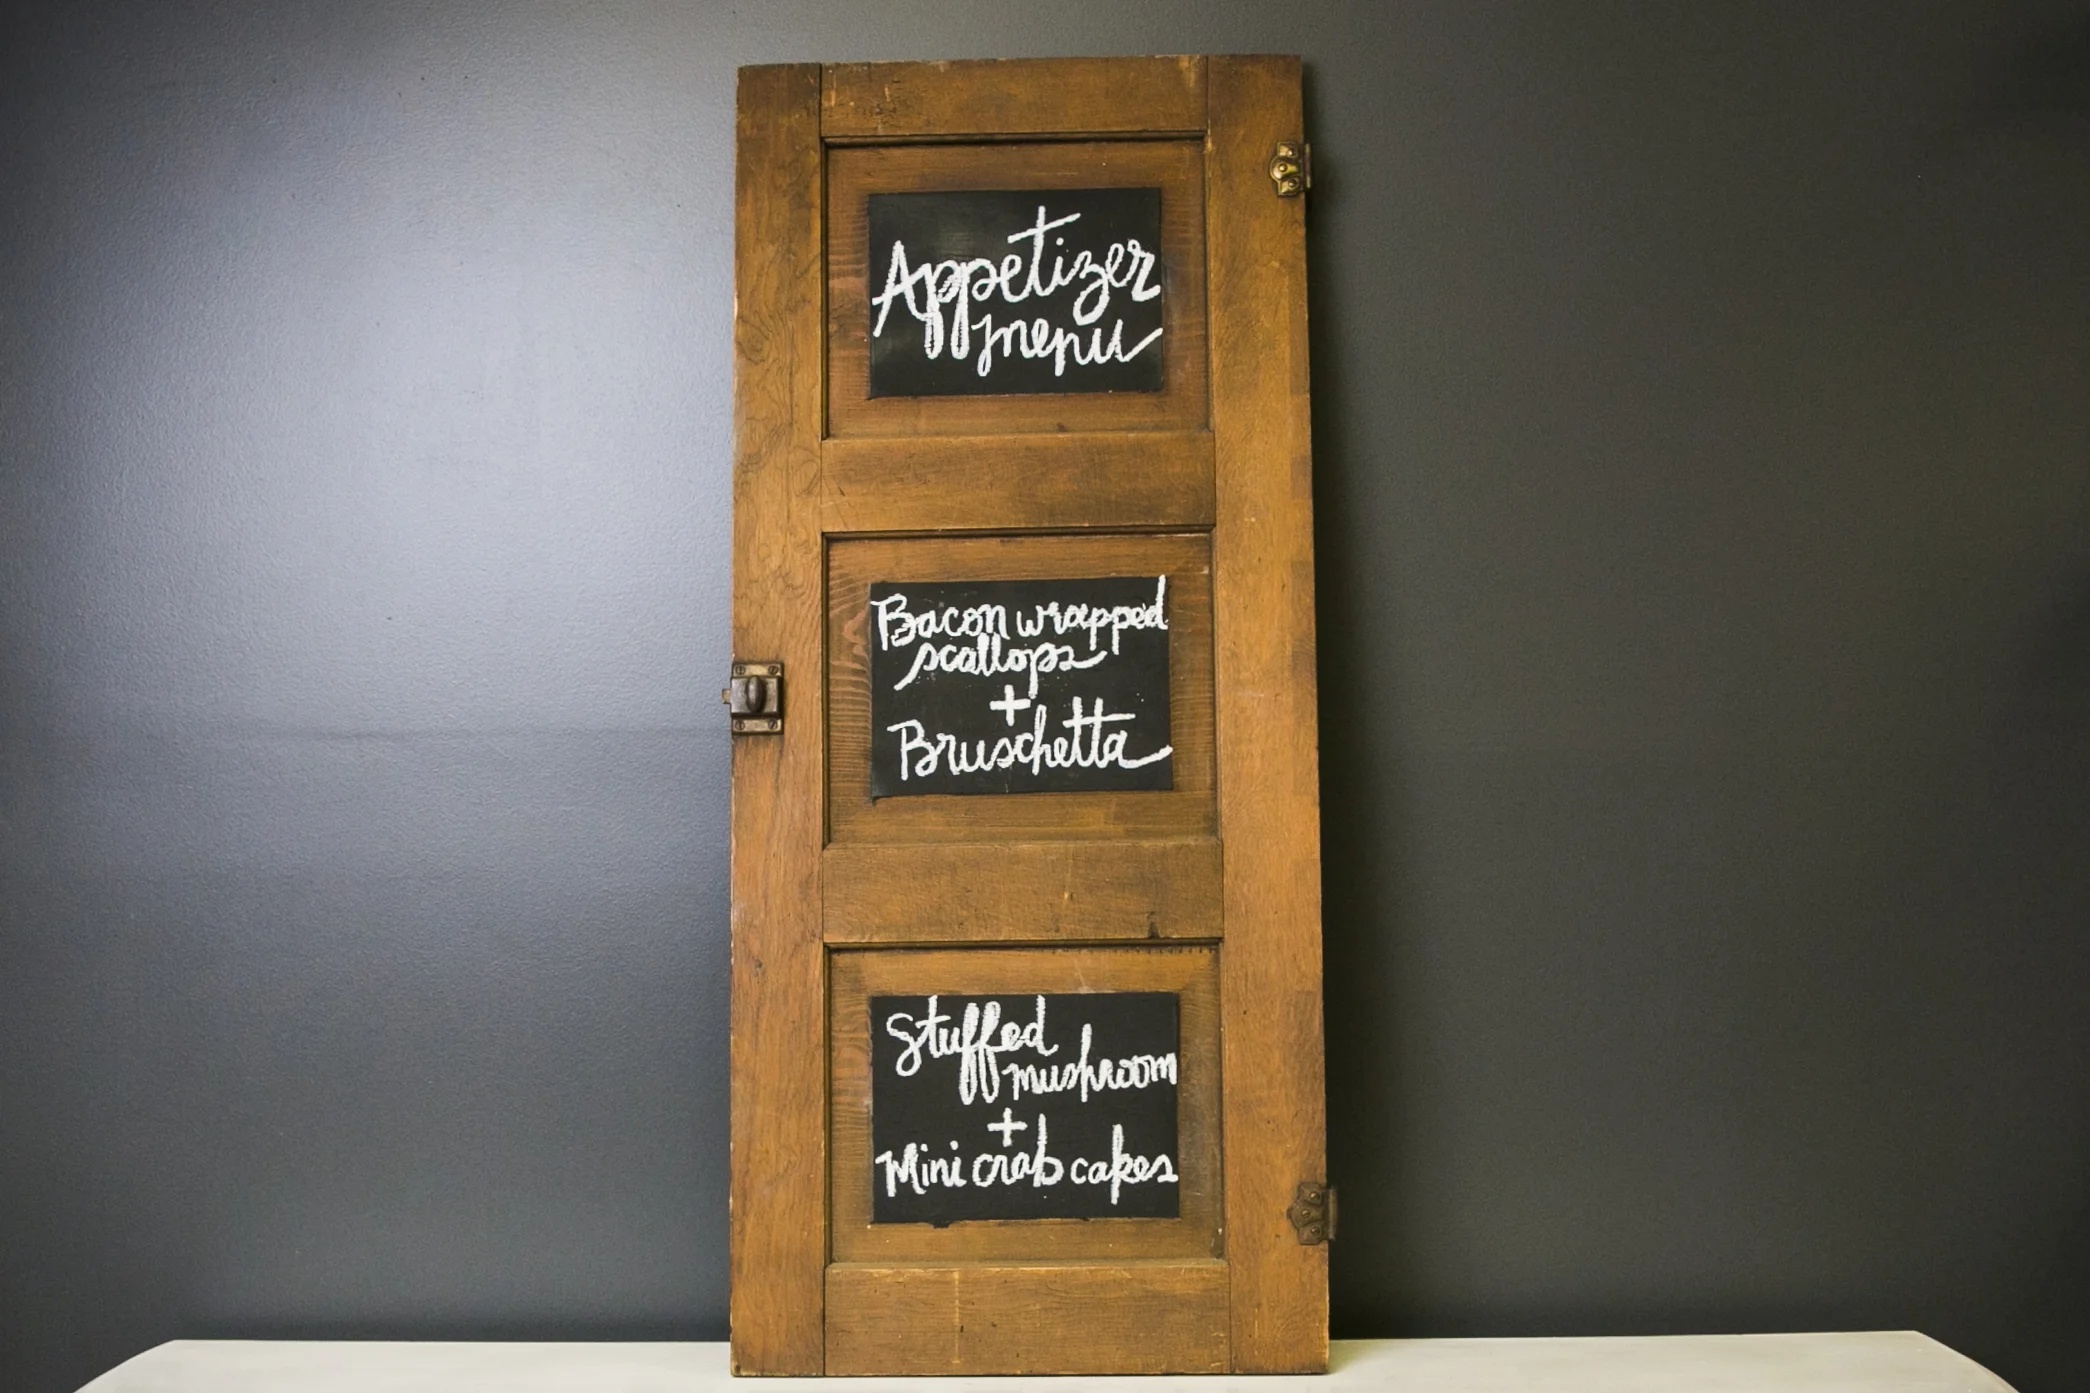 Appetizer
menu
Bacon wrapped
scallops
+
Bruschetta
Stuffed
mushroom
+
Mini crab cakes